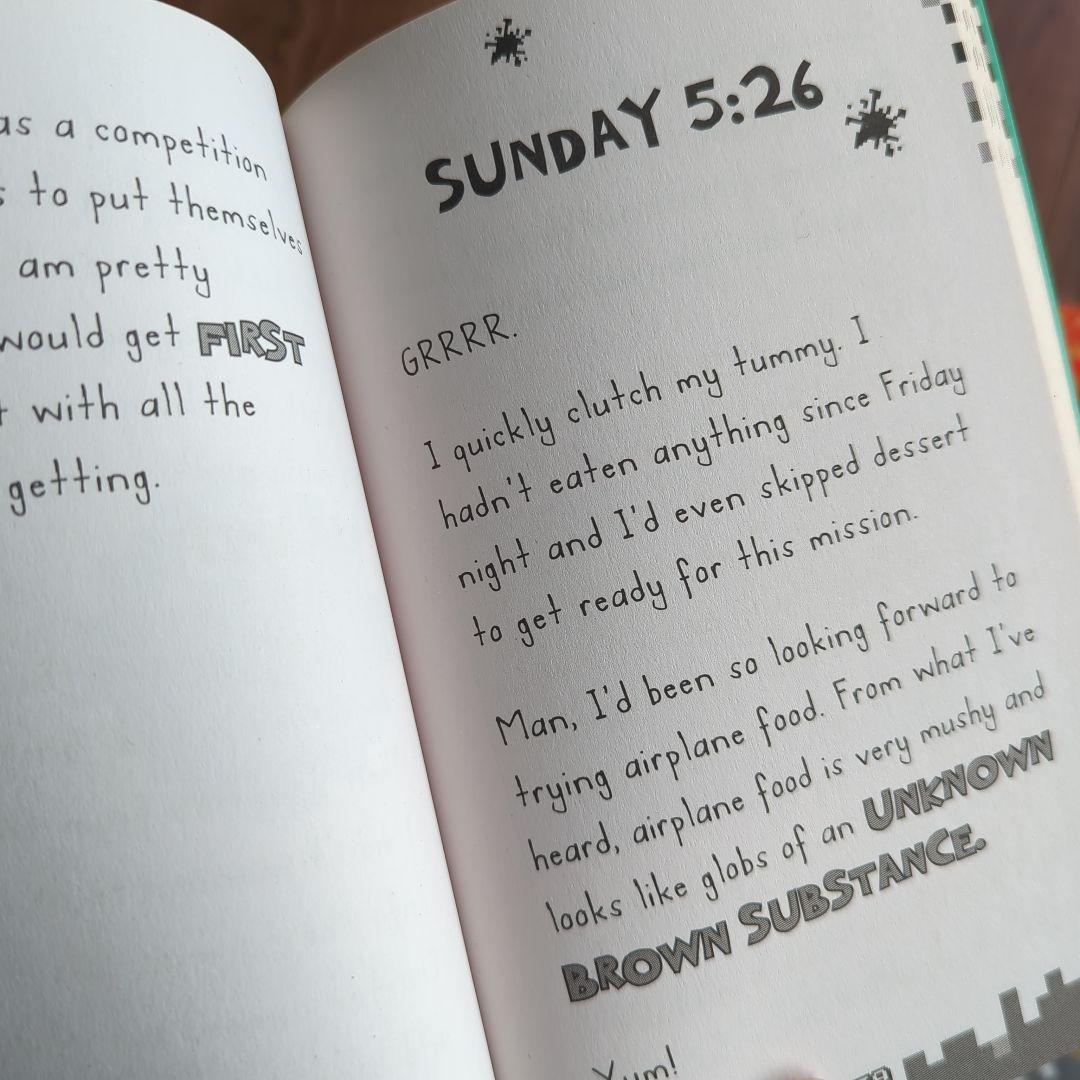 as a competition
to put themselves
am pretty
would get FIRST
with all the
getting.
SUNDAY 5:26
GRRRR.
I quickly clutch my tummy. I
hadn't eaten anything since Friday
night and I'd even skipped dessert
to get ready for this mission.
Man, I'd been so looking forward to
trying airplane food. From what I've
heard, airplane food is very mushy and
looks like globs of an UNKNOWN
BROWN SUBSTANCE.
Yum!